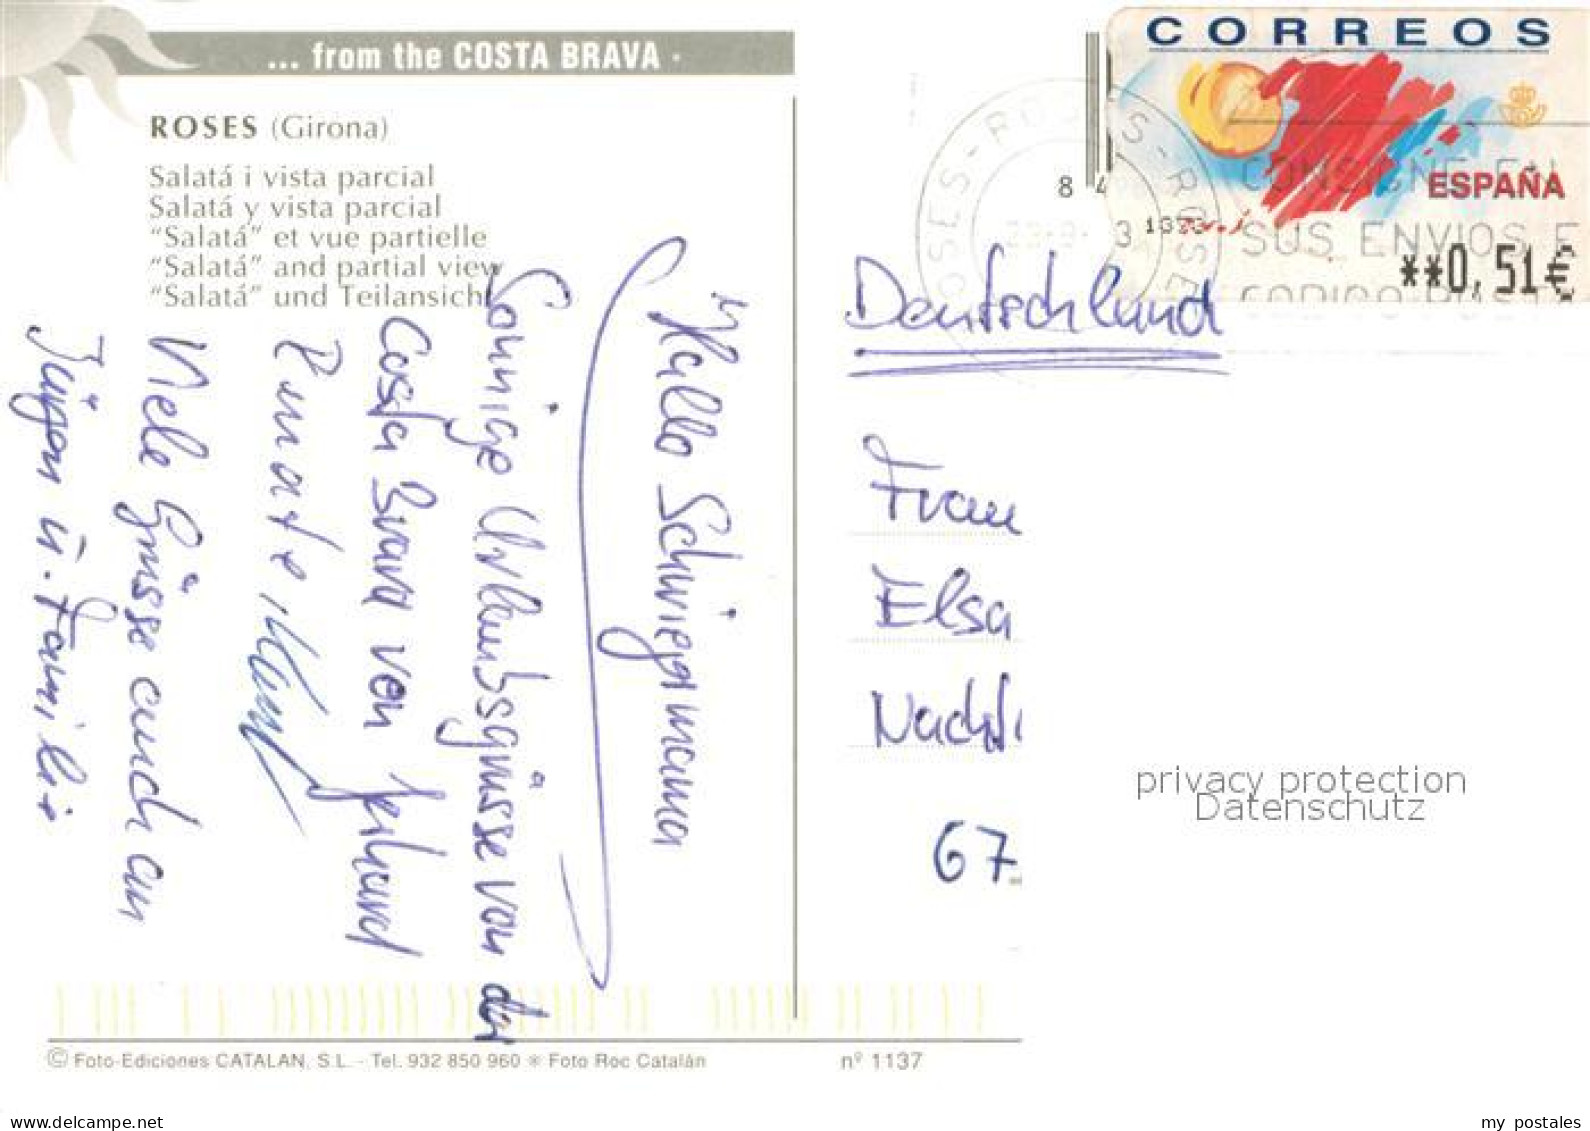 ... from the COSTA BRAVA ·
ROSES (Girona)
Salatá i vista parcial
Salatá y vista parcial
“Salatá” et vue partielle
“Salatá” and partial view
“Salatá” und Teilansicht
"Hallo Schwiegermama
Sonnige Urlaubsgrüsse von der
Costa Brava von Gerhard
Renate
Viele Grüsse auch an
Jürgen u. Familie
CORREOS
ESPAÑA
**0,51€
8 4
ROSES-ROSAS-ROSES
CONSIGNE EN
SUS ENVIOS E
CODIGO POST
Deutschland
Frau
Elsa
67
privacy protection
Datenschutz
© Foto-Ediciones CATALAN, S.L. - Tel. 932 850 960 * Foto Roc Catalán
nº 1137
my postales